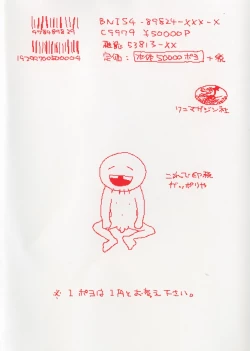 BNI54-89824-XXX-X
C9979 ¥50000P
融乱 53813-XX
定価：本体50000ポヨ+税
ワニマガジン社
これで印税
ガッポリや
※1ポヨは1円とお考え下さい。